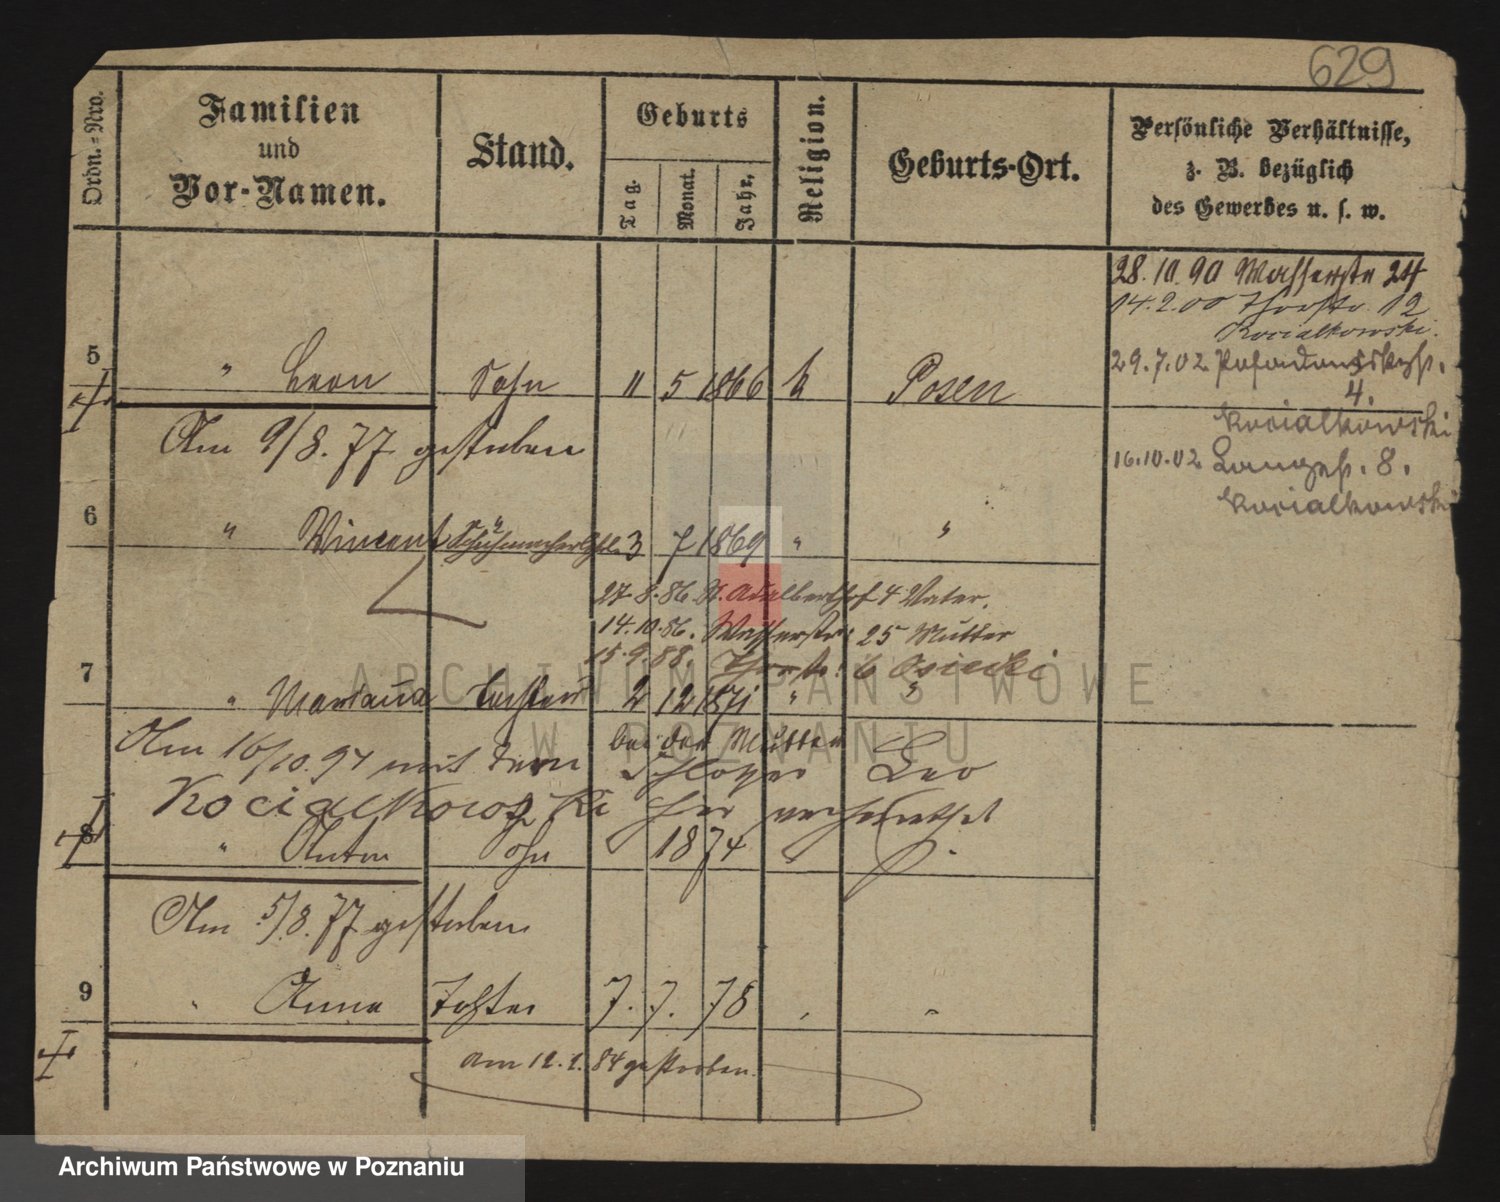 629
Ordn.-Nro.
Familien
und
Vor-Namen.
Stand.
Geburts
Tag.
Monat.
Jahr.
Religion.
Geburts-Ort.
Persönliche Verhältnisse,
z. B. bezüglich
des Gewerbes u. s. w.
28.10.90 Wasserstr 24
14.2.00 Thorstr. 12
Kocialkowski.
5 " Leon Sohn 11 5 1866 k Posen
29.7.02
4.
Kocialkowski
Am 9/8. 77 gestorben
16.10.02 Langestr. 8.
Kocialkowski
6 " Vincent Schuhmacherlehrl. 3 7 1869 " "
27.8.86. St. Adalberthof 4 Vater.
14.10.86. Wasserstr. 25 Mutter
15.9.88. Thorstr. 6 Osiecki
7 " Marianna Tochter 2 12 1871 " "
bei der Mutter
Am 16/10.97 mit dem Schlosser Leo
Kocialkowski hier verheirathet
8 " Anton Sohn 1874 "
Am 5/8. 77 gestorben
9 " Anna Tochter 7. 7. 78 " "
am 12.1.84 gestorben.
ARCHIWUM PAŃSTWOWE
W POZNANIU
Archiwum Państwowe w Poznaniu